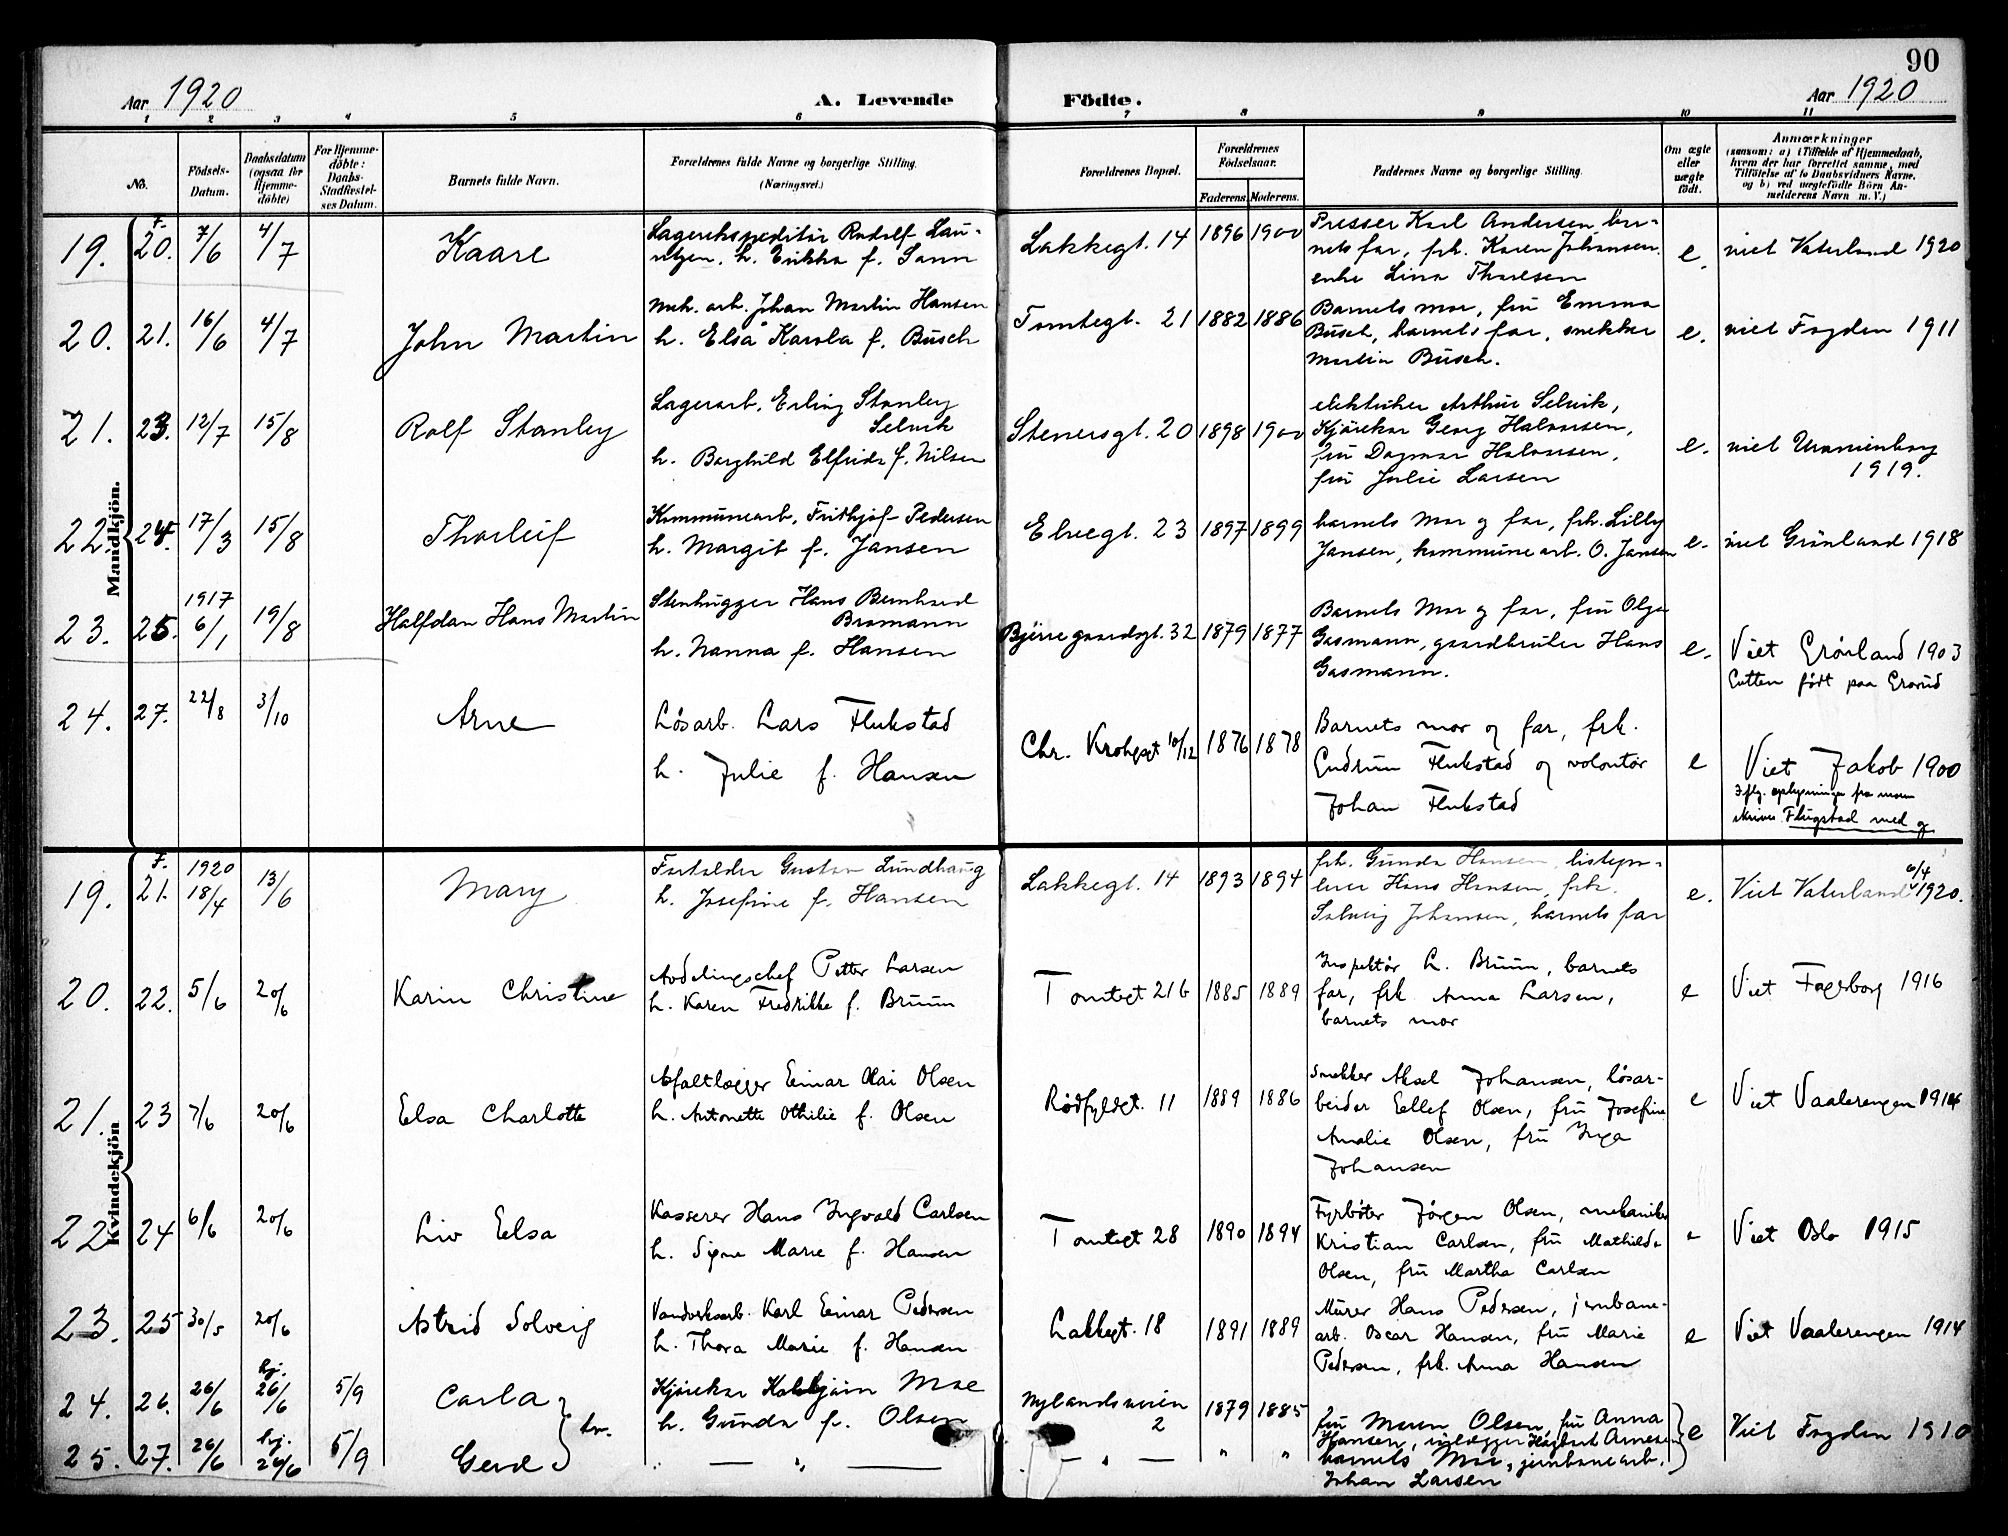 90
Aar 1920
A. Levende Födte.
Aar 1920
1 2 3 4 5 6 7 8 9 10 11
No.
Födsels-
Datum.
Daabsdatum
(ogsaa for
Hjemme-
döbte)
For Hjemme-
döbte:
Daabs-
Stadfestel-
ses Datum.
Barnets fulde Navn.
Forældrenes fulde Navne og borgerlige Stilling.
(Næringsvei.)
Forældrenes Bopæl.
Forældrenes
Födselsaar.
Faderens. Moderens.
Faddernes Navne og borgerlige Stilling.
Om ægte
eller
uægte
födt.
Anmærkninger
(saasom: a) i Tilfælde af Hjemmedaab,
hvem der har forrettet samme, med
Tilföielse af to Daabsvidners Navne,
og b) ved uægtefödte Börn An-
melderens Navn m. V.)
Mandkjön.
19. F. 20. 7/6 4/7 Kaare
Lagerekspeditör Rudolf Lau-
ntzen, h. Erikka f. Sann
Lakkegt. 14 1896 1900
Presser Karl Andersen, bar-
nets far, frk. Karen Johansen,
enke Lina Thoresen
e. viet Vaterland 1920
20. 21. 16/6 4/7 John Martin
mek. arb. Johan Martin Hansen
h. Elsa Karola f. Busch
Tomtegt. 21 1882 1886
Barnets mor, fru Emma
Busch, barnets far, snekker
Martin Busch.
e. viet Frogden 1911
21. 23. 12/7 15/8 Rolf Stanley
Lagerarb. Erling Stanley
Selvik
h. Borghild Elfrida f. Nilsen
Stenersgt. 20 1898 1900
elektriker Arthur Selvik,
Kjörekar Georg Halvorsen,
fru Dagmar Halvorsen,
fru Julie Larsen
e. viet Uranienborg
1919.
22. 24. 17/3 15/8 Thorleif
Kommunearb. Fridhjof Pedersen
h. Margit f. Jansen
Elvegt. 23 1897 1899
barnets Mor og far, frk. Lilly
Jansen, kommunearb. O. Jansen
e. viet Grönland 1918
23. 25. 1917 6/1 19/8 Halfdan Hans Martin
Stenhugger Hans Bernhard
Bromann
h. Nanna f. Hansen
Bjerregaardsgt. 32 1879 1877
Barnets Mor og far, fru Olga
Gasmann, gaardbruker Hans
Gasmann.
e. Viet Grønland 1903
født paa Grorud
24. 27. 22/8 3/10 Arne
Løsarb. Lars Flukstad
h. Julie f. Hansen
Chr. Krohgsgt 10/12 1876 1878
Barnets mor og far, frk.
Gudrun Flukstad og volontør
Johan Flukstad
e Viet Jakob 1900
Iflg. oplysninger fra moren
skrives Flugstad med g
Kvindekjön
19. F. 21. 1920 18/4 13/6 Mary
Forgylder Gustav Lundhaug
h. Josefine f. Hansen
Lakkegt. 14 1893 1894
frk. Gunda Hansen, listepr-
lerer Hans Hansen, frk.
Solveig Johansen, barnets far
e. Viet Vaterland 6/4 1920.
20. 22. 5/6 20/6 Karin Christine
Avdelingschef Petter Larsen
h. Karen Fredrikke f. Bruun
Tomtegt 21b 1885 1889
Inspektør L. Bruun, barnets
far, frk. Anna Larsen,
barnets mor
e Viet Fagerborg 1916
21. 23 7/6 20/6 Elsa Charlotte
Asfaltlægger Einar Olai Olsen
h. Antonette Othilie f. Olsen
Rødfyldgt. 11 1889 1886
Snekker Aksel Johansen, løsar-
beider Eellef Olsen, fru Josefine
Amalie Olsen, fru Inga
Johansen
e Viet Vaalerengen 1914
22. 24 6/6 20/6 Liv Elsa
Kasserer Hans Ingvald Carlsen
h. Signe Marie f. Hansen
Tomtegt 28 1890 1894
Fyrbøter Jørgen Olsen, mekaniker
Kristian Carlsen, fru Mathilde
Olsen, fru Martha Carlsen
e Viet Oslo 1915
23. 25 30/5 20/6 Astrid Solveig
Vandverksarb. Karl Einar Pedersen
h. Thora Marie f. Hansen
Lakkegt. 18 1891 1889
Murer Hans Pedersen, jernbane-
arb. Oscar Hansen, fru Marie
Pedersen, frk. Anna Hansen
e Viet Vaalerengen 1914
24. 26. 26/6 hj. 26/6 5/9 Carla } tv.
Kjörekar Moe
h. Gunda f. Olsen
Nylandsveien
2 1879 1885
fru Maren Olsen, fru Anna
Hansen, Arnesen
barnets Mor, jernbanearb.
Johan Larsen
e Viet Frogden 1910
25. 27. 26/6 hj. 26/6 5/9 Gerd
" — " — — " — " "